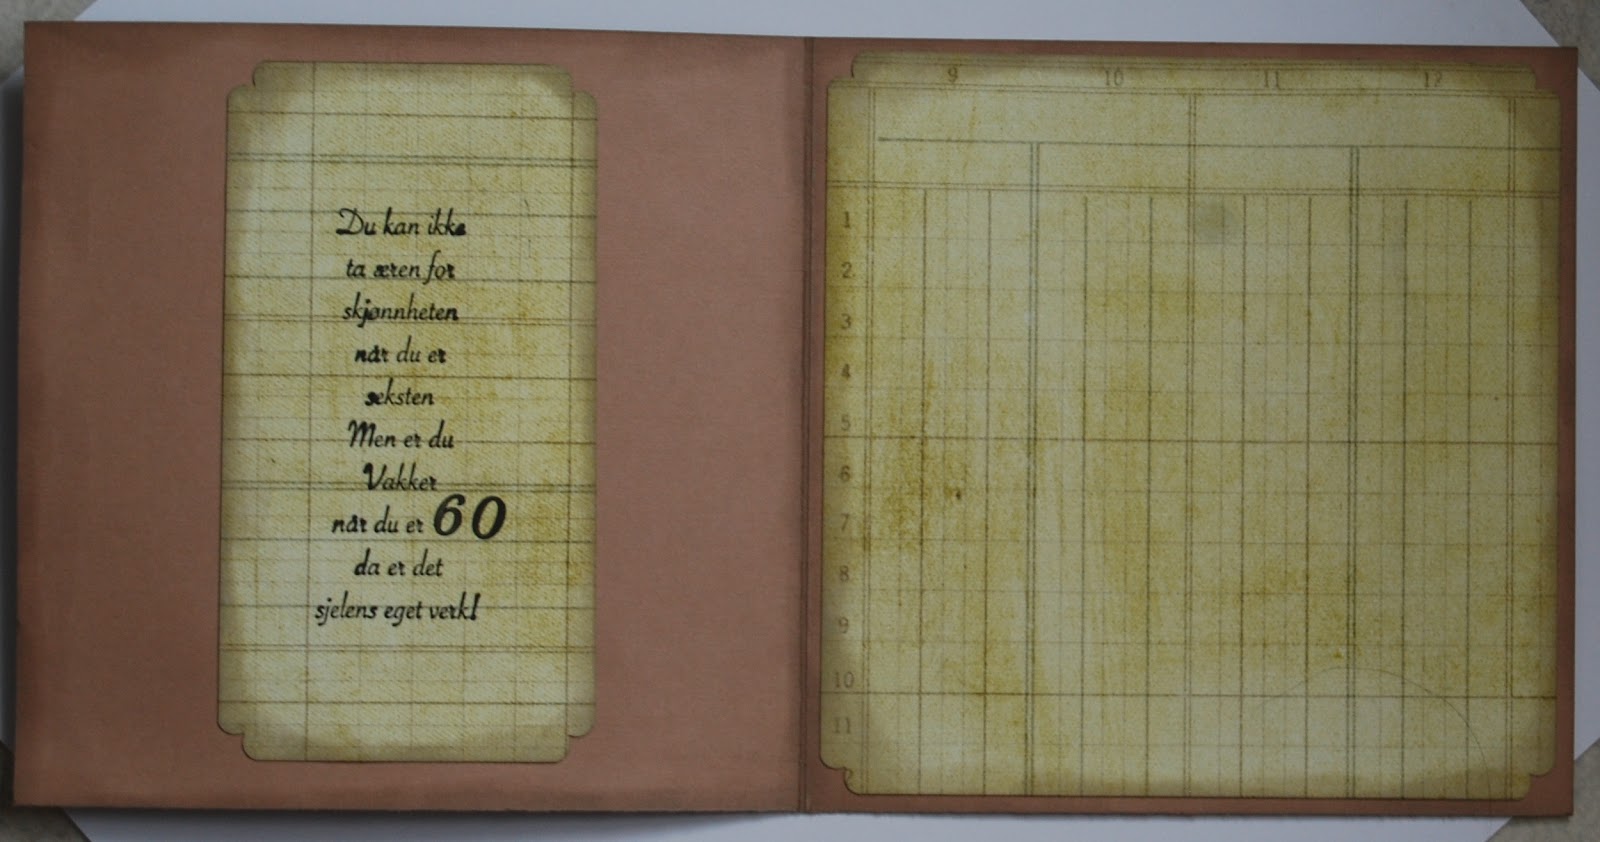 Du kan ikke
ta æren for
skjønnheten
når du er
seksten
Men er du
Vakker
når du er 60
da er det
sjelens eget verk!
9 10 11 12
1
2
3
4
5
6
7
8
9
10
11